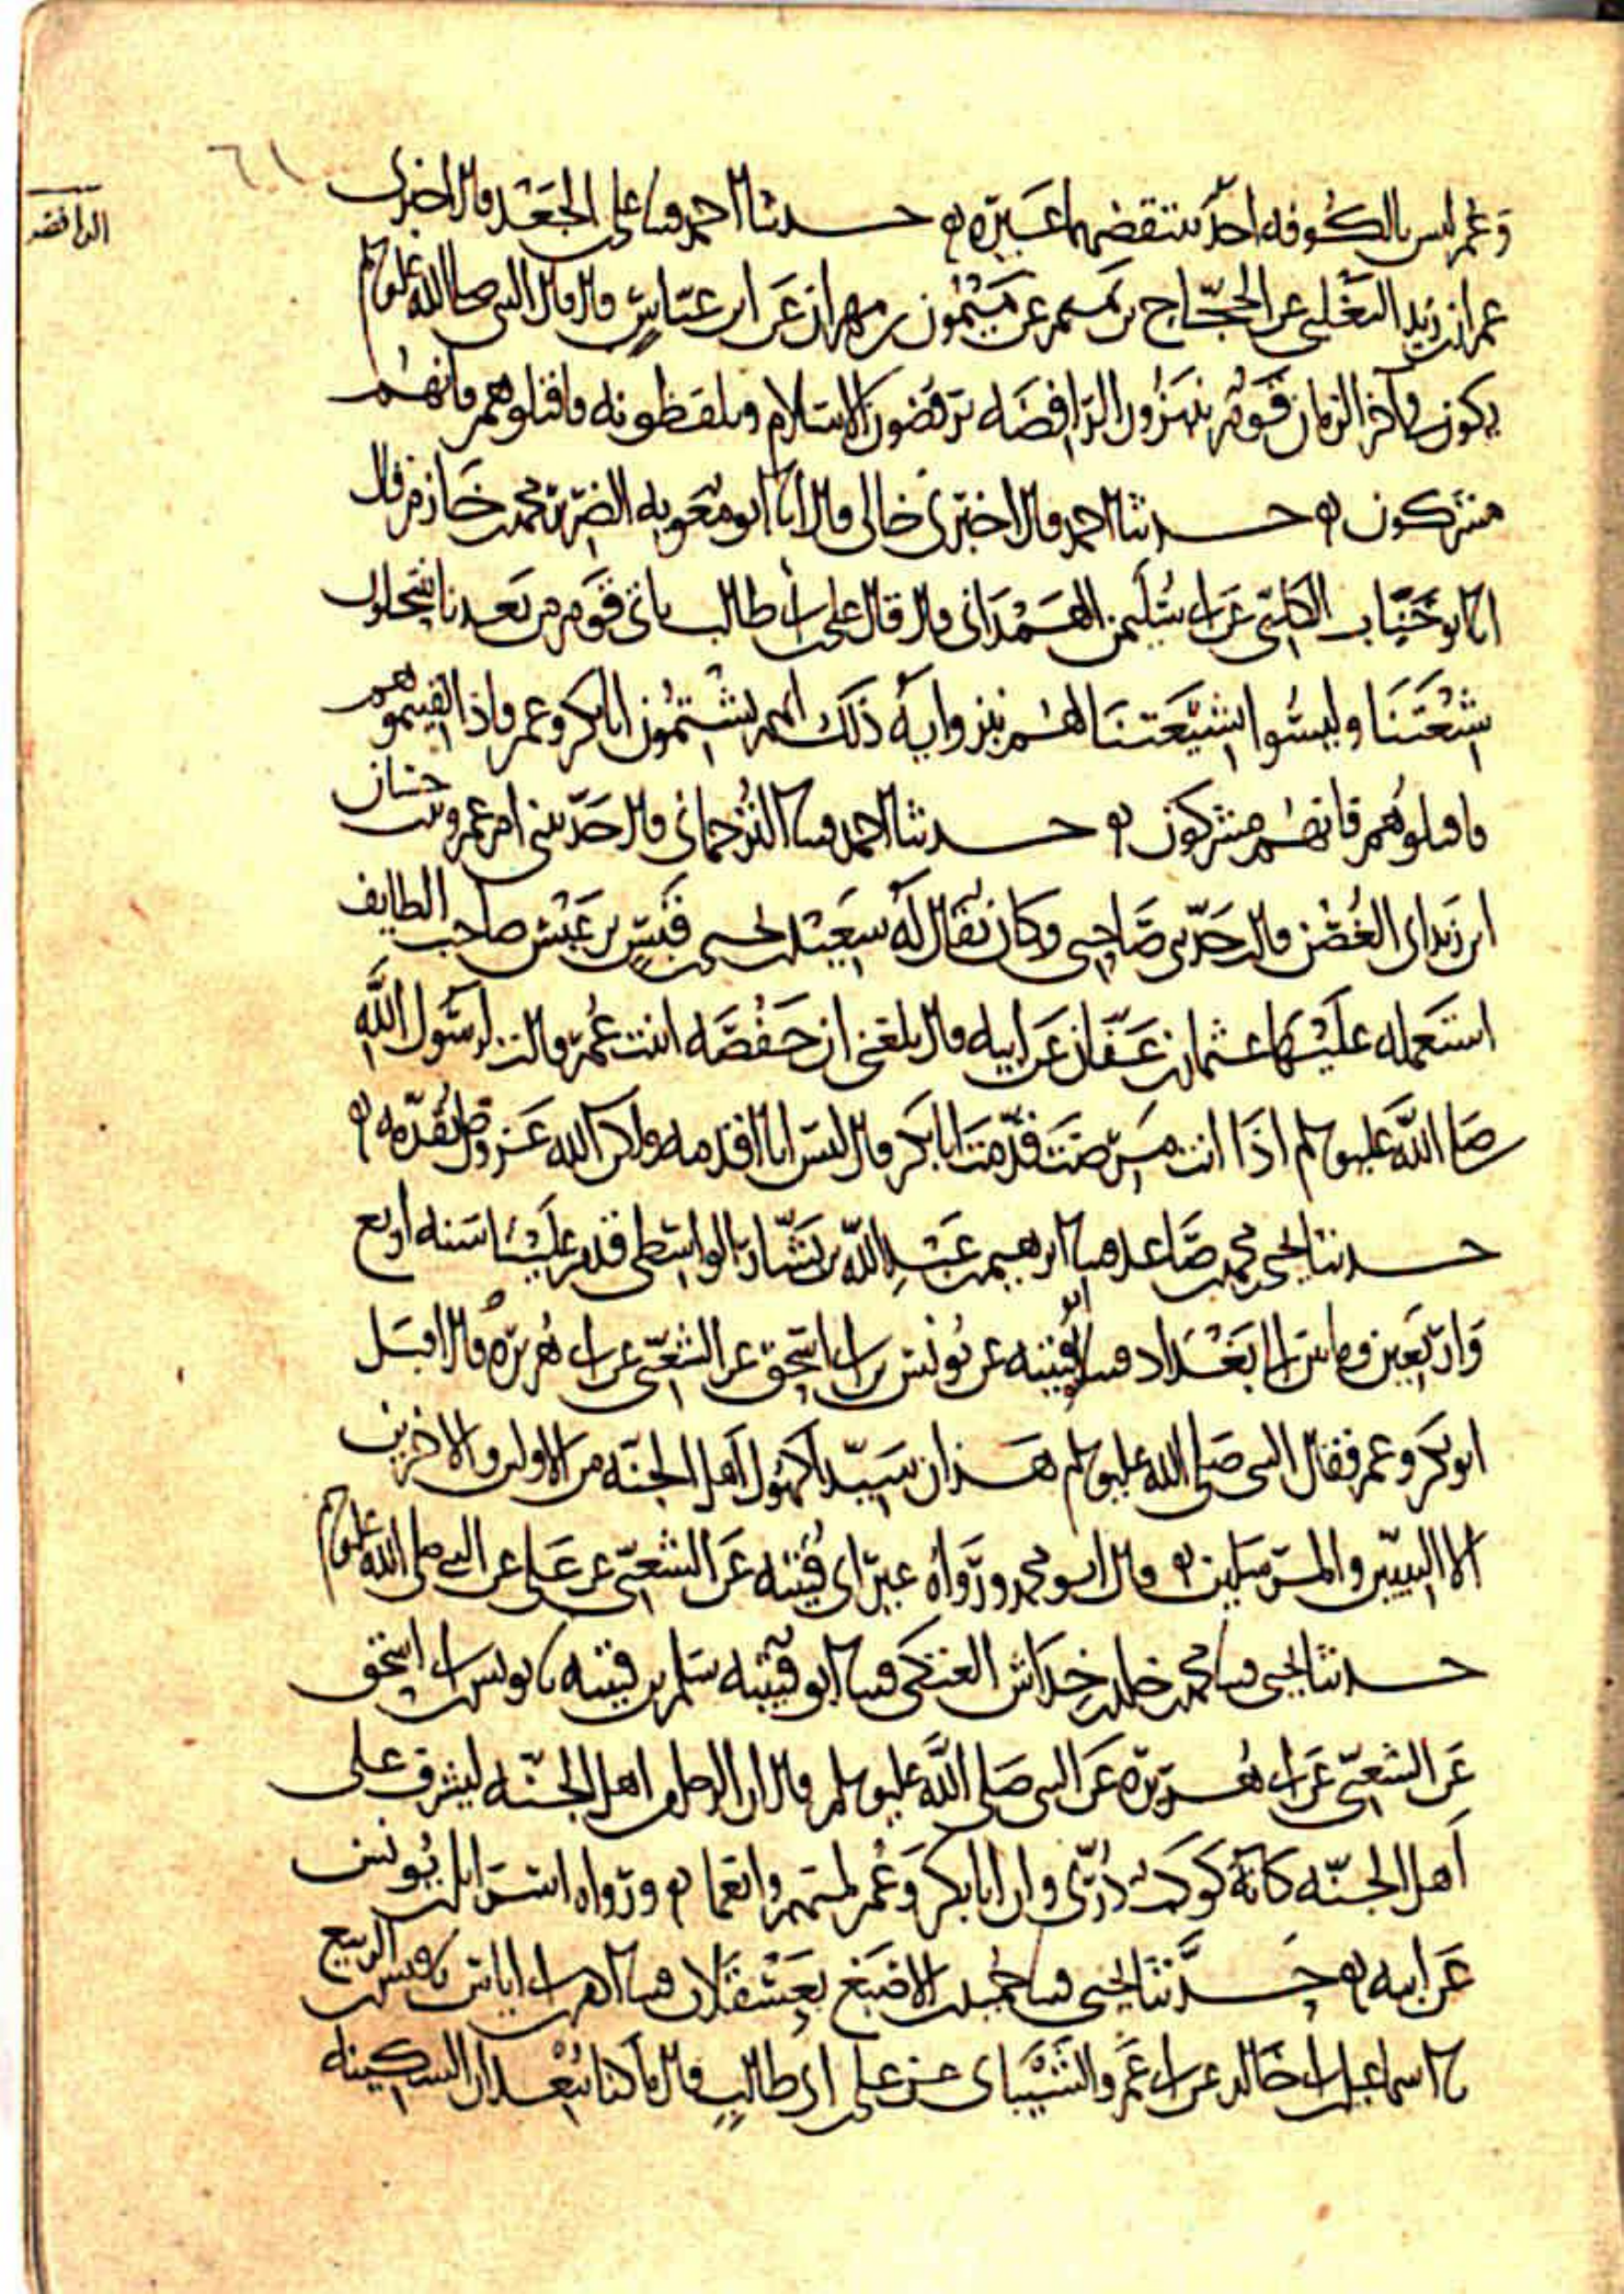 ٦١
الرافضه
وعمر ليس بالكوفه احد ينتقصهما غيره حدثنا احمد ثنا على الجعد قال اخبرنى
عمران بن زيد التغلبى عن الحجاج بن تميم عن ميمون بن مهران عن ابن عباس قال قال النبى صلى الله عليه وسلم
يكون فى آخر الزمان قوم ينبزون الرافضه يرفضون الاسلام ويلفظونه فاقتلوهم فانهم
مشركون حدثنا احمد قال اخبرنى خالى قال انا ابو معويه الضرير محمد بن خازم قال
انا ابو جناب الكلبى عن ابى سليمن الهمدانى قال قال على بن ابى طالب ياتى قوم من بعدنا ينتحلون
شيعتنا وليسوا بشيعتنا لهم نبز وايه ذلك انهم يشتمون ابا بكر وعمر فاذا لقيتموهم
فاقتلوهم فانهم مشركون حدثنا احمد ثنا الترجمانى قال حدثتنى ام عمرو بنت حسان
ابن زيد ابى الغصن قال حدثنى صاحبى وكان يقال له سعيد بن يحيى بن قيس بن عبس صاحب الطايف
استعمله عليها عثمان بن عفان عن ابيه قال بلغنى ان حفصه ابنت عمر قالت لرسول الله
صلى الله عليه وسلم اذا انت مرضت قدمت ابا بكر قال لست انا اقدمه ولكن الله عز وجل يقدمه
حدثنا يحيى بن محمد بن صاعد ثنا ابرهيم بن عبد الله بن بشار الواسطى قدم علينا سنه اربع
واربعين وماتين الى بغداد ثنا ابو قتيبه عن يونس بن ابى اسحق عن الشعبى عن ابى هريره قال اقبل
ابو بكر وعمر فقال النبى صلى الله عليه وسلم هذان سيدا كهول اهل الجنه من الاولين والاخرين
الا النبيين والمرسلين قال ابو محمد ورواه غير ابى قتيبه عن الشعبى عن على عن النبى صلى الله عليه وسلم
حدثنا يحيى ثنا محمد بن خلد بن خداش العتكى ثنا ابو قتيبه سلم بن قتيبه نا يونس بن ابى اسحق
عن الشعبى عن ابى هريره عن النبى صلى الله عليه وسلم قال ان الرجل من اهل الجنه ليشرف على
اهل الجنه كانه كوكب درى وان ابا بكر وعمر لمنهم وانعما ورواه اسرايل بن يونس
عن ابيه حدثنا يحيى ثنا محمد بن الاصبغ بعسقلان ثنا ادم بن ابى اياس نا قيس بن الربيع
نا اسماعيل بن ابى خالد عن ابى عمرو الشيبانى عن على بن ابى طالب قال ما كنا نبعد ان السكينه